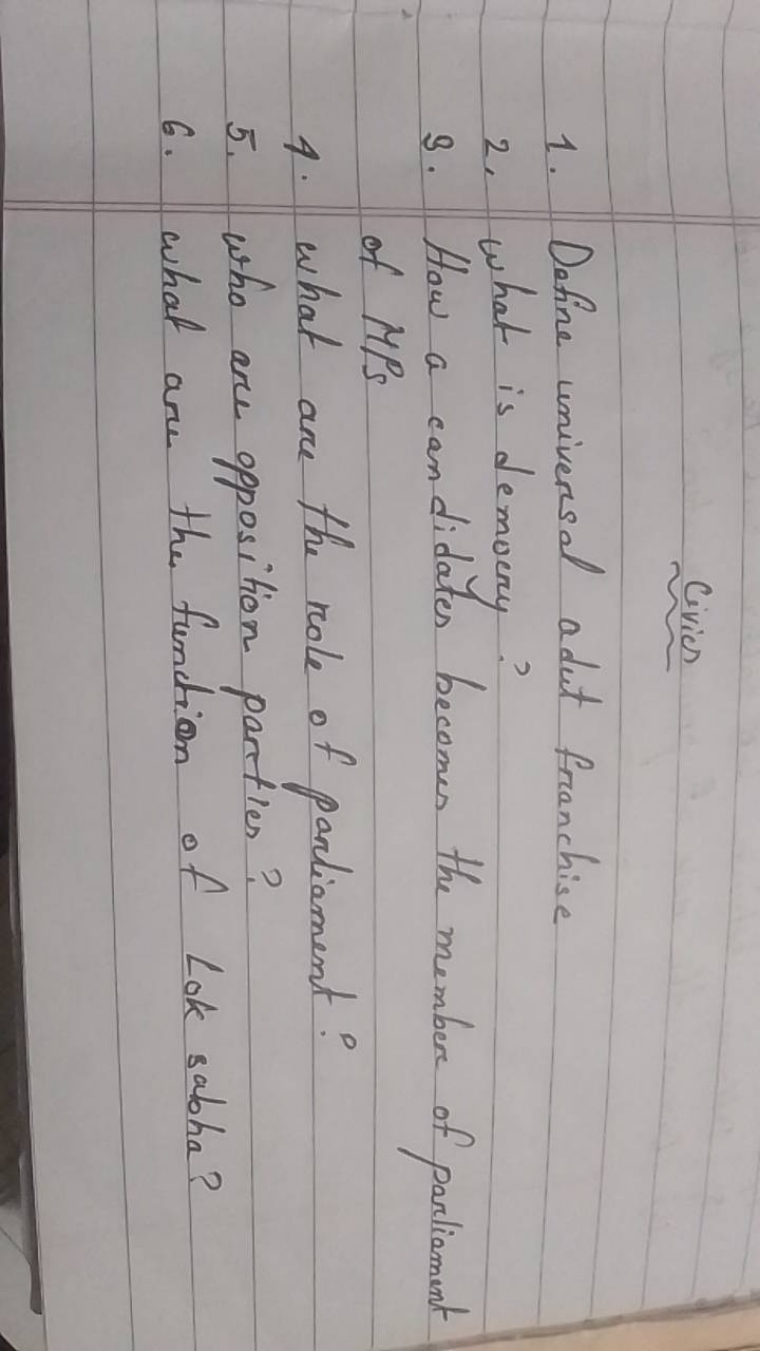 Civics
1. Define universal adut franchise
2. what is demoery?
3. How a candidates becomes the member of parliament
of MPs
4. what are the role of parliament?
5. who are opposition parties?
6. what are the function of Lok sabha?